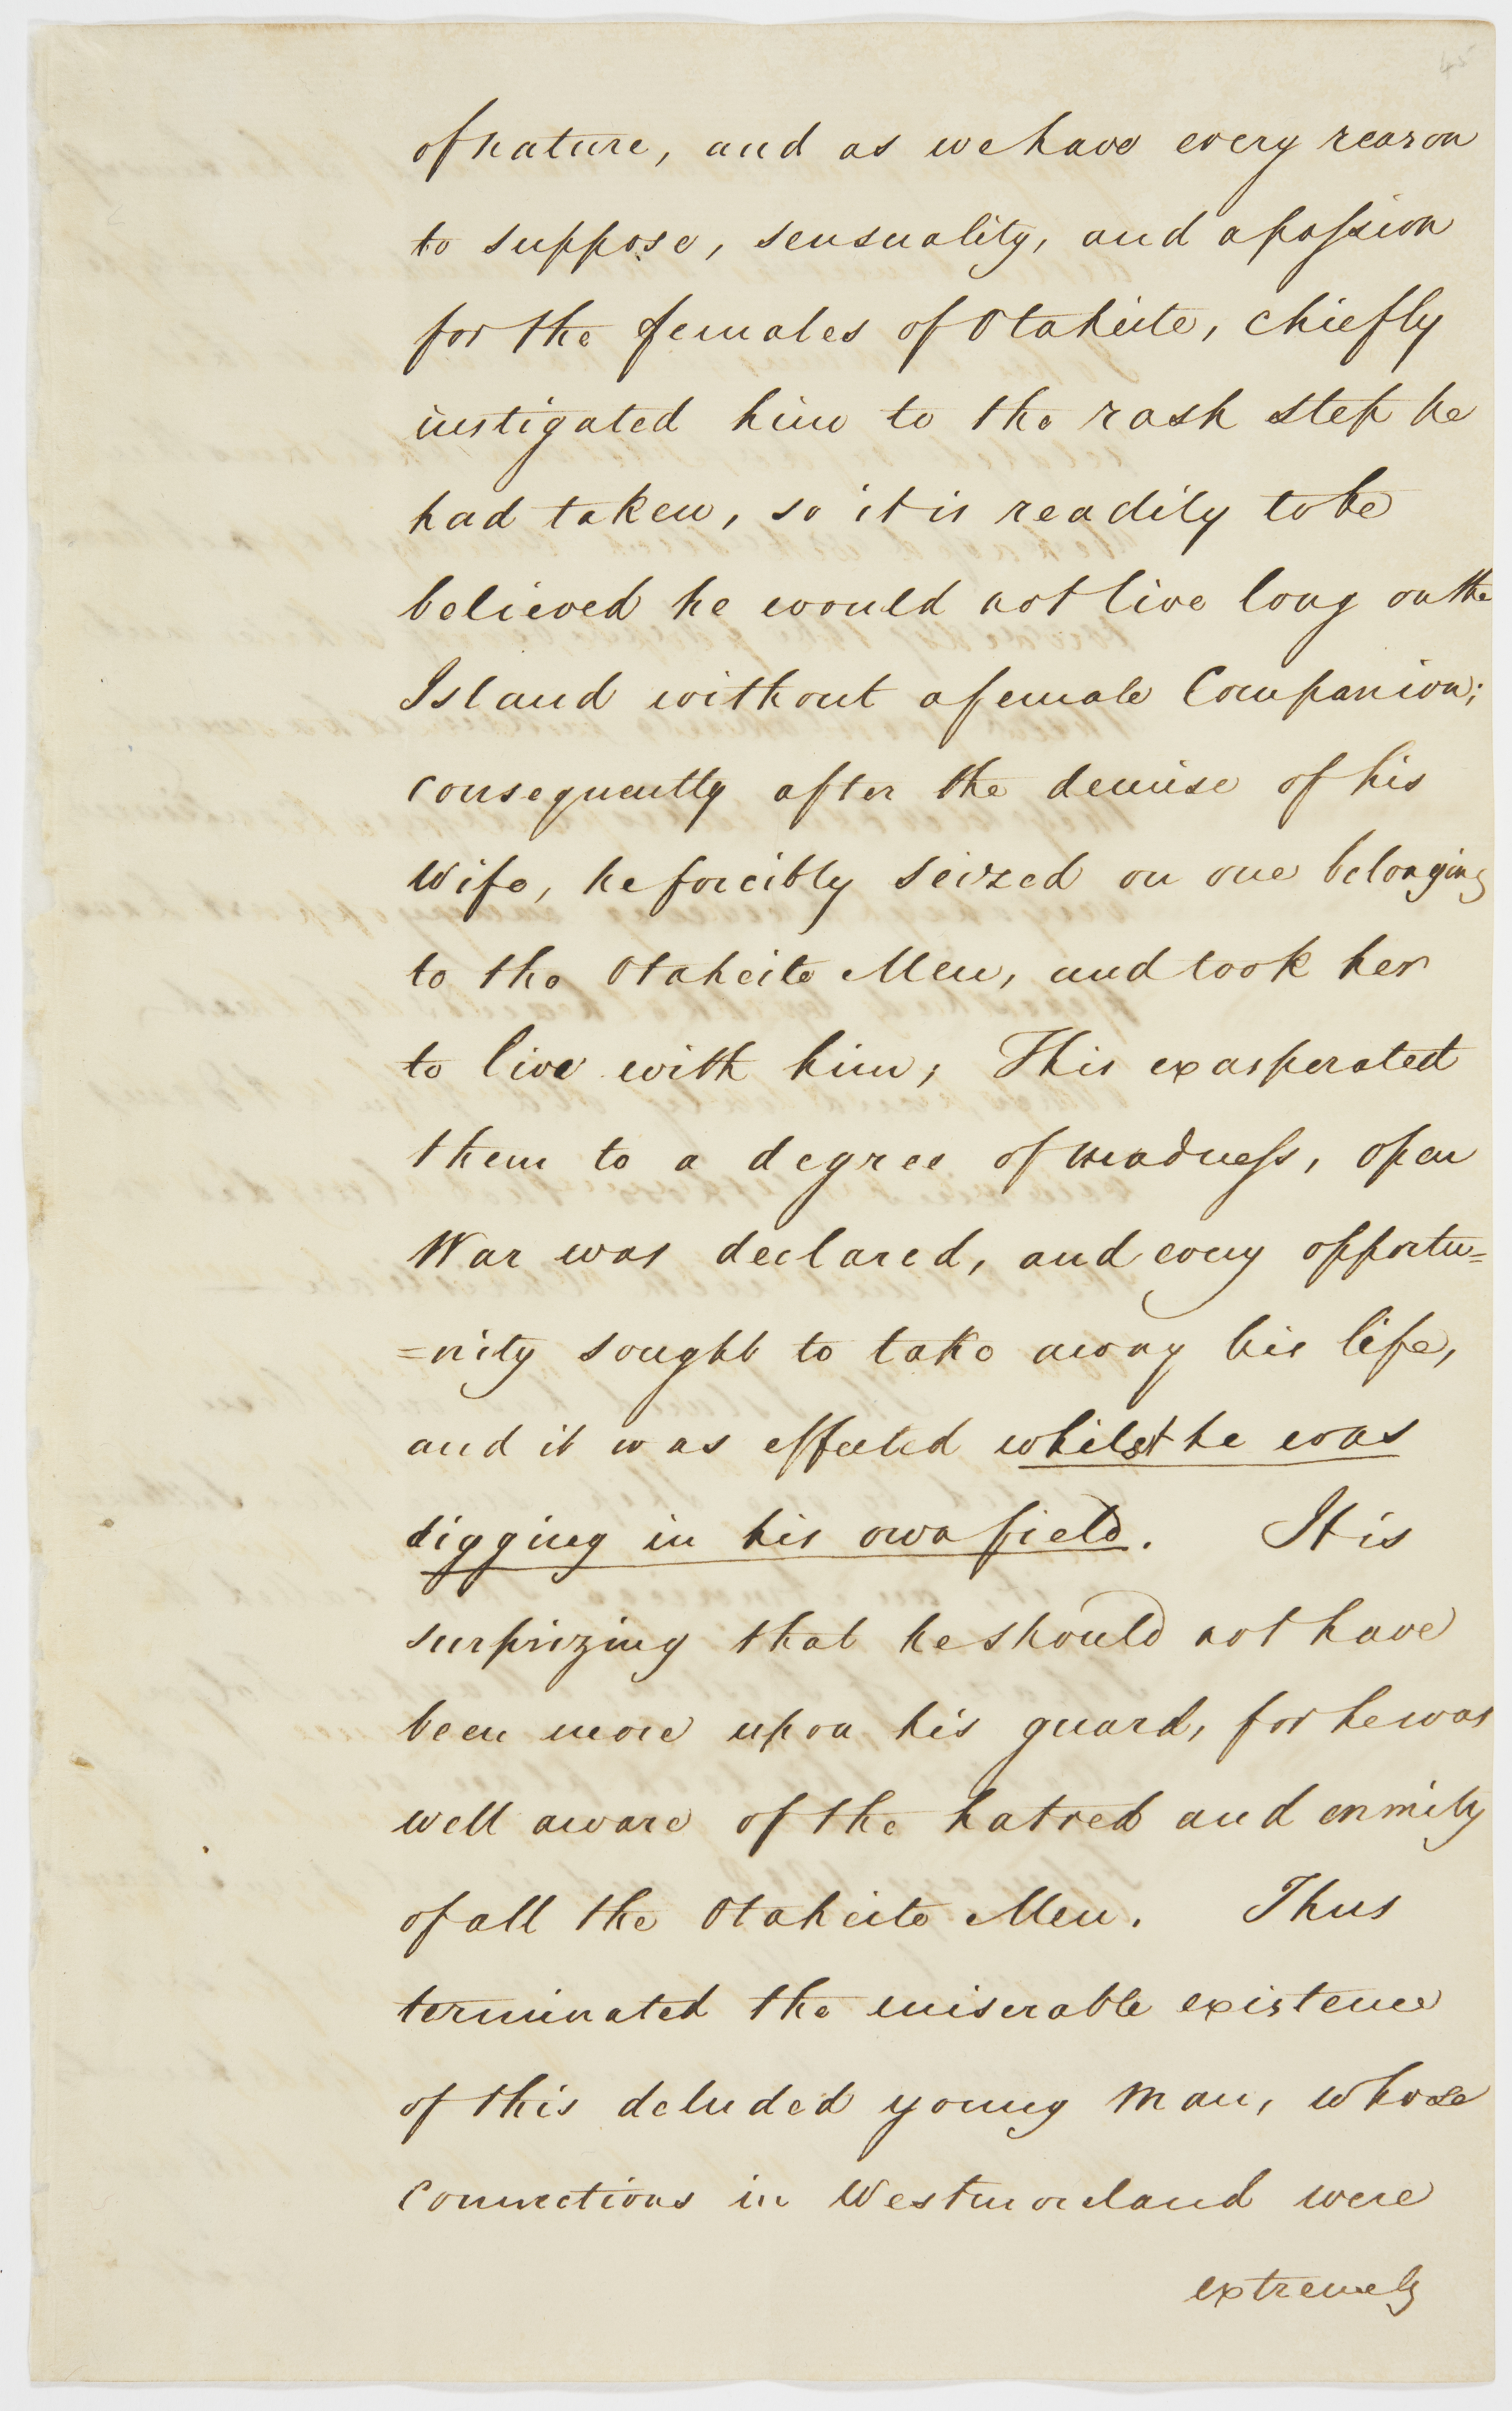 45
of nature, and as we have every reason
to suppose, sensuality, and a passion
for the females of Otaheite, chiefly
instigated him to the rash step he
had taken, so it is readily to be
believed he would not live long on the
Island without a female Companion;
consequently after the demise of his
Wife, he forcibly seized on one belonging
to the Otaheite Men, and took her
to live with him; This exasperated
them to a degree of madness, open
War was declared, and every opportu=
=nity sought to take away his life,
and it was effected whilst he was
digging in his own field. It is
surprizing that he should not have
been more upon his guard, for he was
well aware of the hatred and enmity
of all the Otaheite Men. Thus
terminated the miserable existence
of this deluded young Man, whose
connections in Westmorland were
extremely